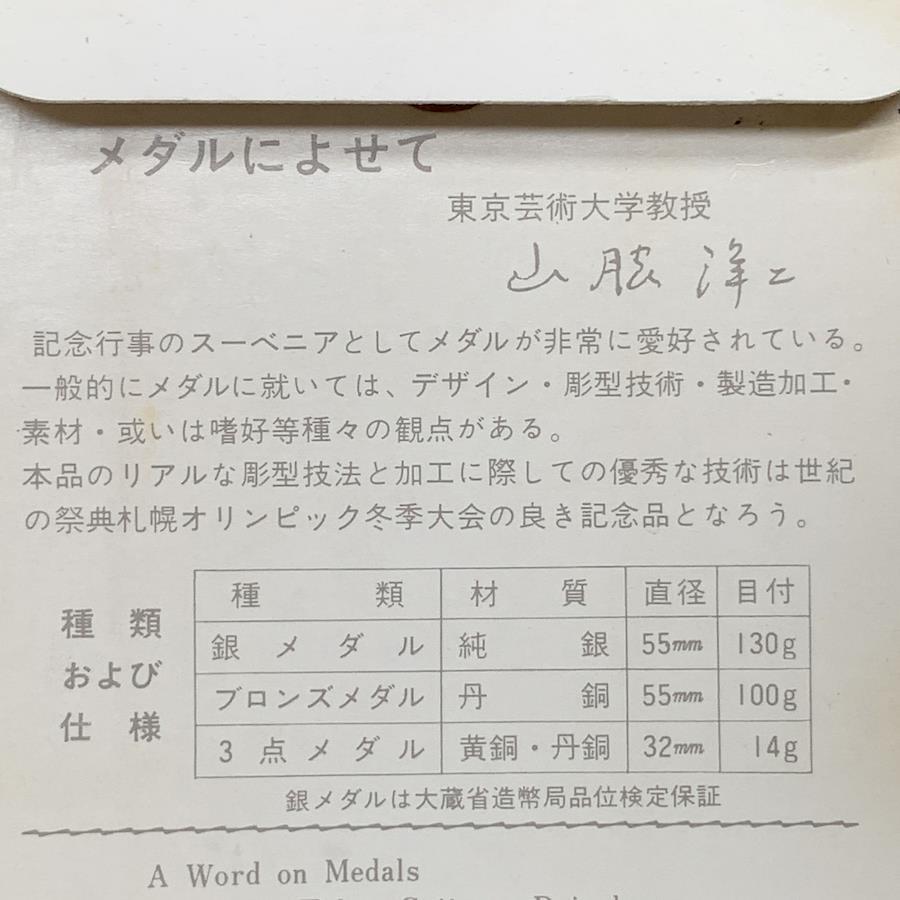 メダルによせて
東京芸術大学教授
山脇洋二
記念行事のスーベニアとしてメダルが非常に愛好されている。
一般的にメダルに就いては、デザイン・彫型技術・製造加工・
素材・或いは嗜好等種々の観点がある。
本品のリアルな彫型技法と加工に際しての優秀な技術は世紀
の祭典札幌オリンピック冬季大会の良き記念品となろう。
種類および仕様
種類 材質 直径 目付
銀メダル 純銀 55mm 130g
ブロンズメダル 丹銅 55mm 100g
3点メダル 黄銅・丹銅 32mm 14g
銀メダルは大蔵省造幣局品位検定保証
A Word on Medals